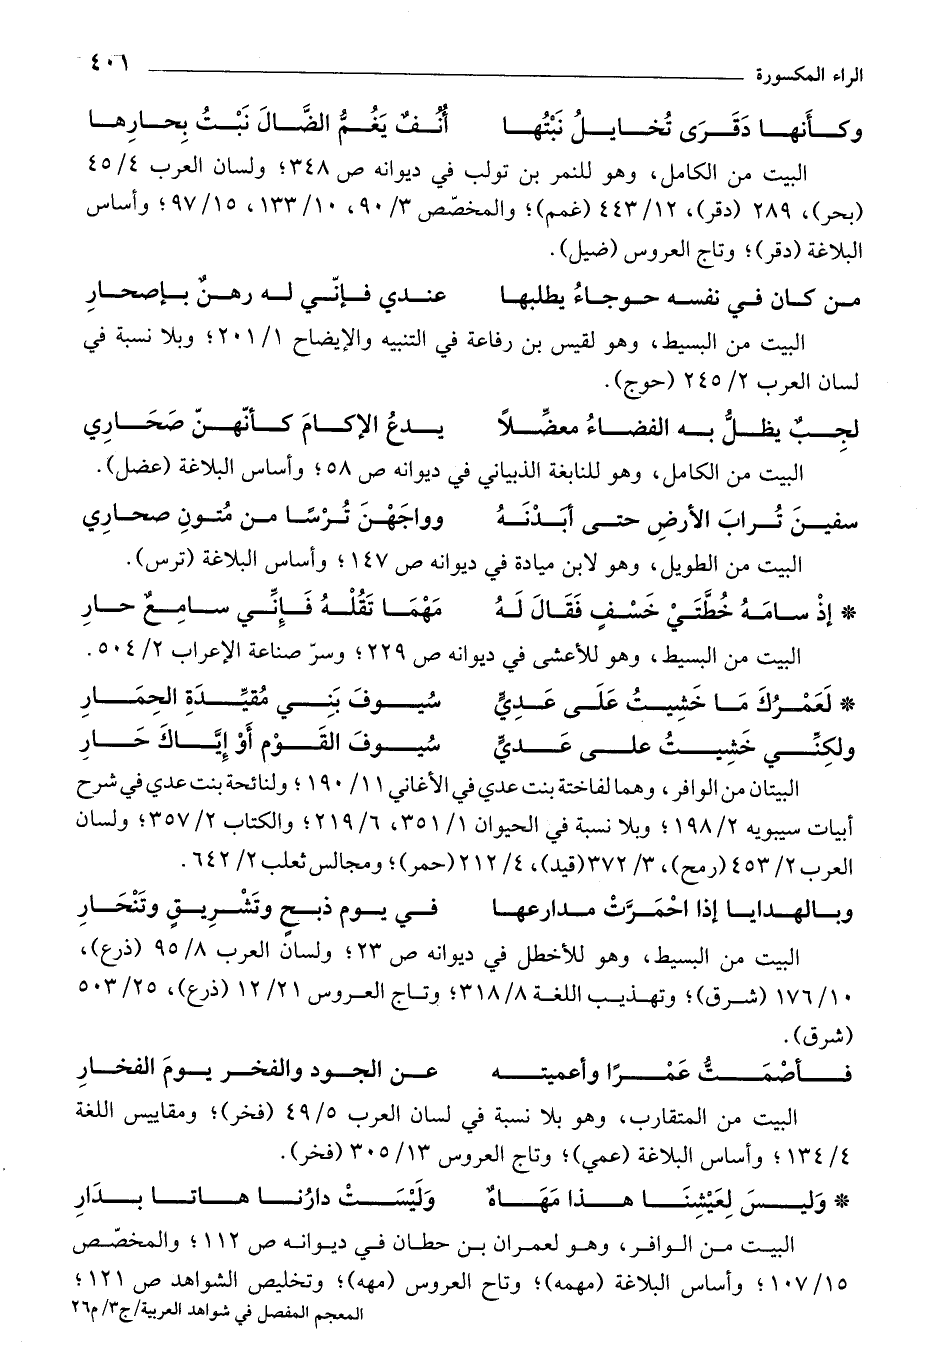 الراء المكسورة ٤٠٦
وكأنها دَقَرَى تُخايلُ نَبْتُها أُنُفٌ يَغُمُّ الضَّالَ نَبْتُ بِحارِها
البيت من الكامل، وهو للنمر بن تولب في ديوانه ص ٣٤٨؛ ولسان العرب ٤/ ٤٥
(بحر)، ٢٨٩ (دقر)، ١٢/ ٤٤٣ (غمم)؛ والمخصّص ٣/ ٩٠، ١٠/ ١٣٣، ١٥/ ٩٧؛ وأساس
البلاغة (دقر)؛ وتاج العروس (ضيل).
من كان في نفسه حوجاءُ يطلبها عندي فإنّي له رهنٌ بإصحارِ
البيت من البسيط، وهو لقيس بن رفاعة في التنبيه والإيضاح ١/ ٢٠١؛ وبلا نسبة في
لسان العرب ٢/ ٢٤٥ (حوج).
لجِبٌ يظلُّ به الفضاءُ معضِّلاً يدعُ الإكامَ كأنّهنّ صَحَاري
البيت من الكامل، وهو للنابغة الذبياني في ديوانه ص ٥٨؛ وأساس البلاغة (عضل).
سفينَ تُرابَ الأرضِ حتى أبَذْنَهُ وواجَهْنَ تُرْسًا من مُتونِ صحاري
البيت من الطويل، وهو لابن ميادة في ديوانه ص ١٤٧؛ وأساس البلاغة (ترس).
* إذْ سامَهُ خُطَّتَيْ خَسْفٍ فَقَالَ لَهُ مَهْمَا تَقُلْهُ فَإِنِّي سامِعٌ حارِ
البيت من البسيط، وهو للأعشى في ديوانه ص ٢٢٩؛ وسرّ صناعة الإعراب ٢/ ٥٠٤.
* لَعَمْرُكَ مَا خَشِيتُ عَلَى عَدِيٍّ سُيوفَ بَنِي مُقَيِّدَةِ الحِمَارِ
ولكِنِّي خَشِيتُ على عَدِيٍّ سُيوفَ القَوْمِ أَوْ إِيَّاكَ حَارِ
البيتان من الوافر، وهما لفاختة بنت عدي في الأغاني ١١/ ١٩٠؛ ولنائحة بنت عدي في شرح
أبيات سيبويه ٢/ ١٩٨؛ وبلا نسبة في الحيوان ١/ ٣٥١، ٦/ ٢١٩؛ والكتاب ٢/ ٣٥٧؛ ولسان
العرب ٢/ ٤٥٣ (رمح)، ٣/ ٣٧٢ (قيد)، ٤/ ٢١٢ (حمر)؛ ومجالس ثعلب ٢/ ٦٤٢.
وبالهدايا إذا احْمَرَّتْ مدارعها في يوم ذبحٍ وتَشْرِيقٍ وتَنْحَارِ
البيت من البسيط، وهو للأخطل في ديوانه ص ٢٣؛ ولسان العرب ٨/ ٩٥ (ذرع)،
١٠/ ١٧٦ (شرق)؛ وتهذيب اللغة ٨/ ٣١٨؛ وتاج العروس ٢١/ ١٢ (ذرع)، ٢٥/ ٥٠٣
(شرق).
فأصْمَتُّ عَمْرًا وأعميته عن الجود والفخر يومَ الفخارِ
البيت من المتقارب، وهو بلا نسبة في لسان العرب ٥/ ٤٩ (فخر)؛ ومقاييس اللغة
٤/ ١٣٤؛ وأساس البلاغة (عمي)؛ وتاج العروس ١٣/ ٣٠٥ (فخر).
* وَليسَ لِعَيْشِنَا هذا مَهَاهٌ وَلَيْسَتْ دارُنا هاتا بِدَارِ
البيت من الوافر، وهو لعمران بن حطان في ديوانه ص ١١٢؛ والمخصّص
١٥/ ١٠٧؛ وأساس البلاغة (مهمه)؛ وتاج العروس (مهه)؛ وتخليص الشواهد ص ١٢١؛
المعجم المفصل في شواهد العربية/ج٣/ م٢٦